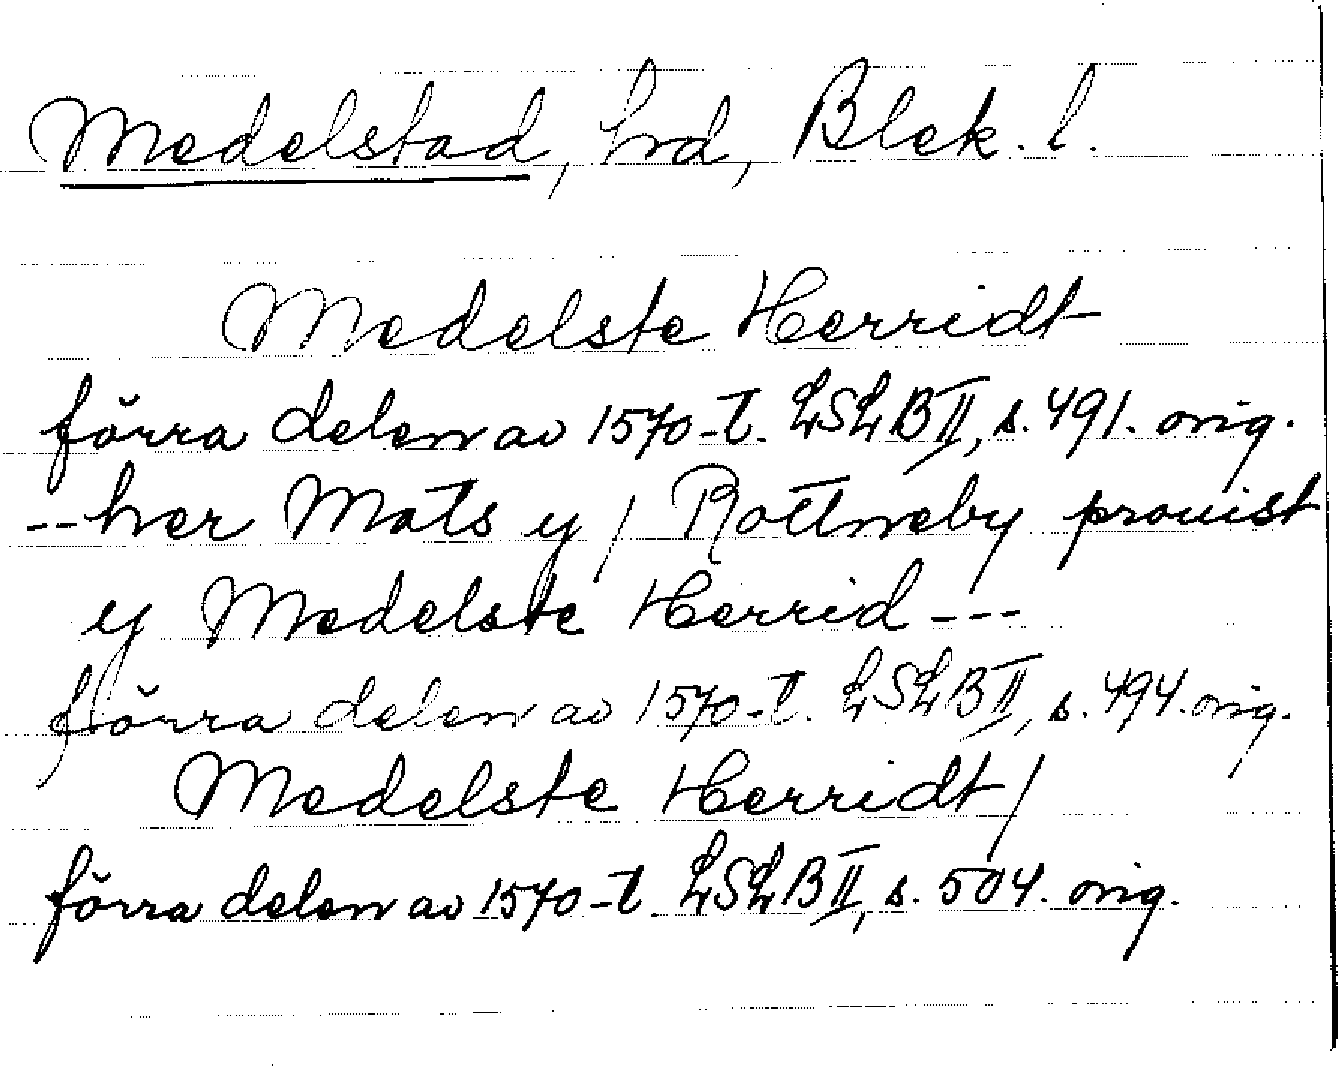 Medelstad, hrd, Blek. l.
Medelste Herridt
förra delen av 1570-t. LSLB II, s. 491. orig.
--her Mats y / Rottneby prouist
y Medelste Herrid---
förra delen av 1570-t. LSLB II, s. 494. orig.
Medelste Herridt/
förra delen av 1570-t. LSLB II, s. 504. orig.